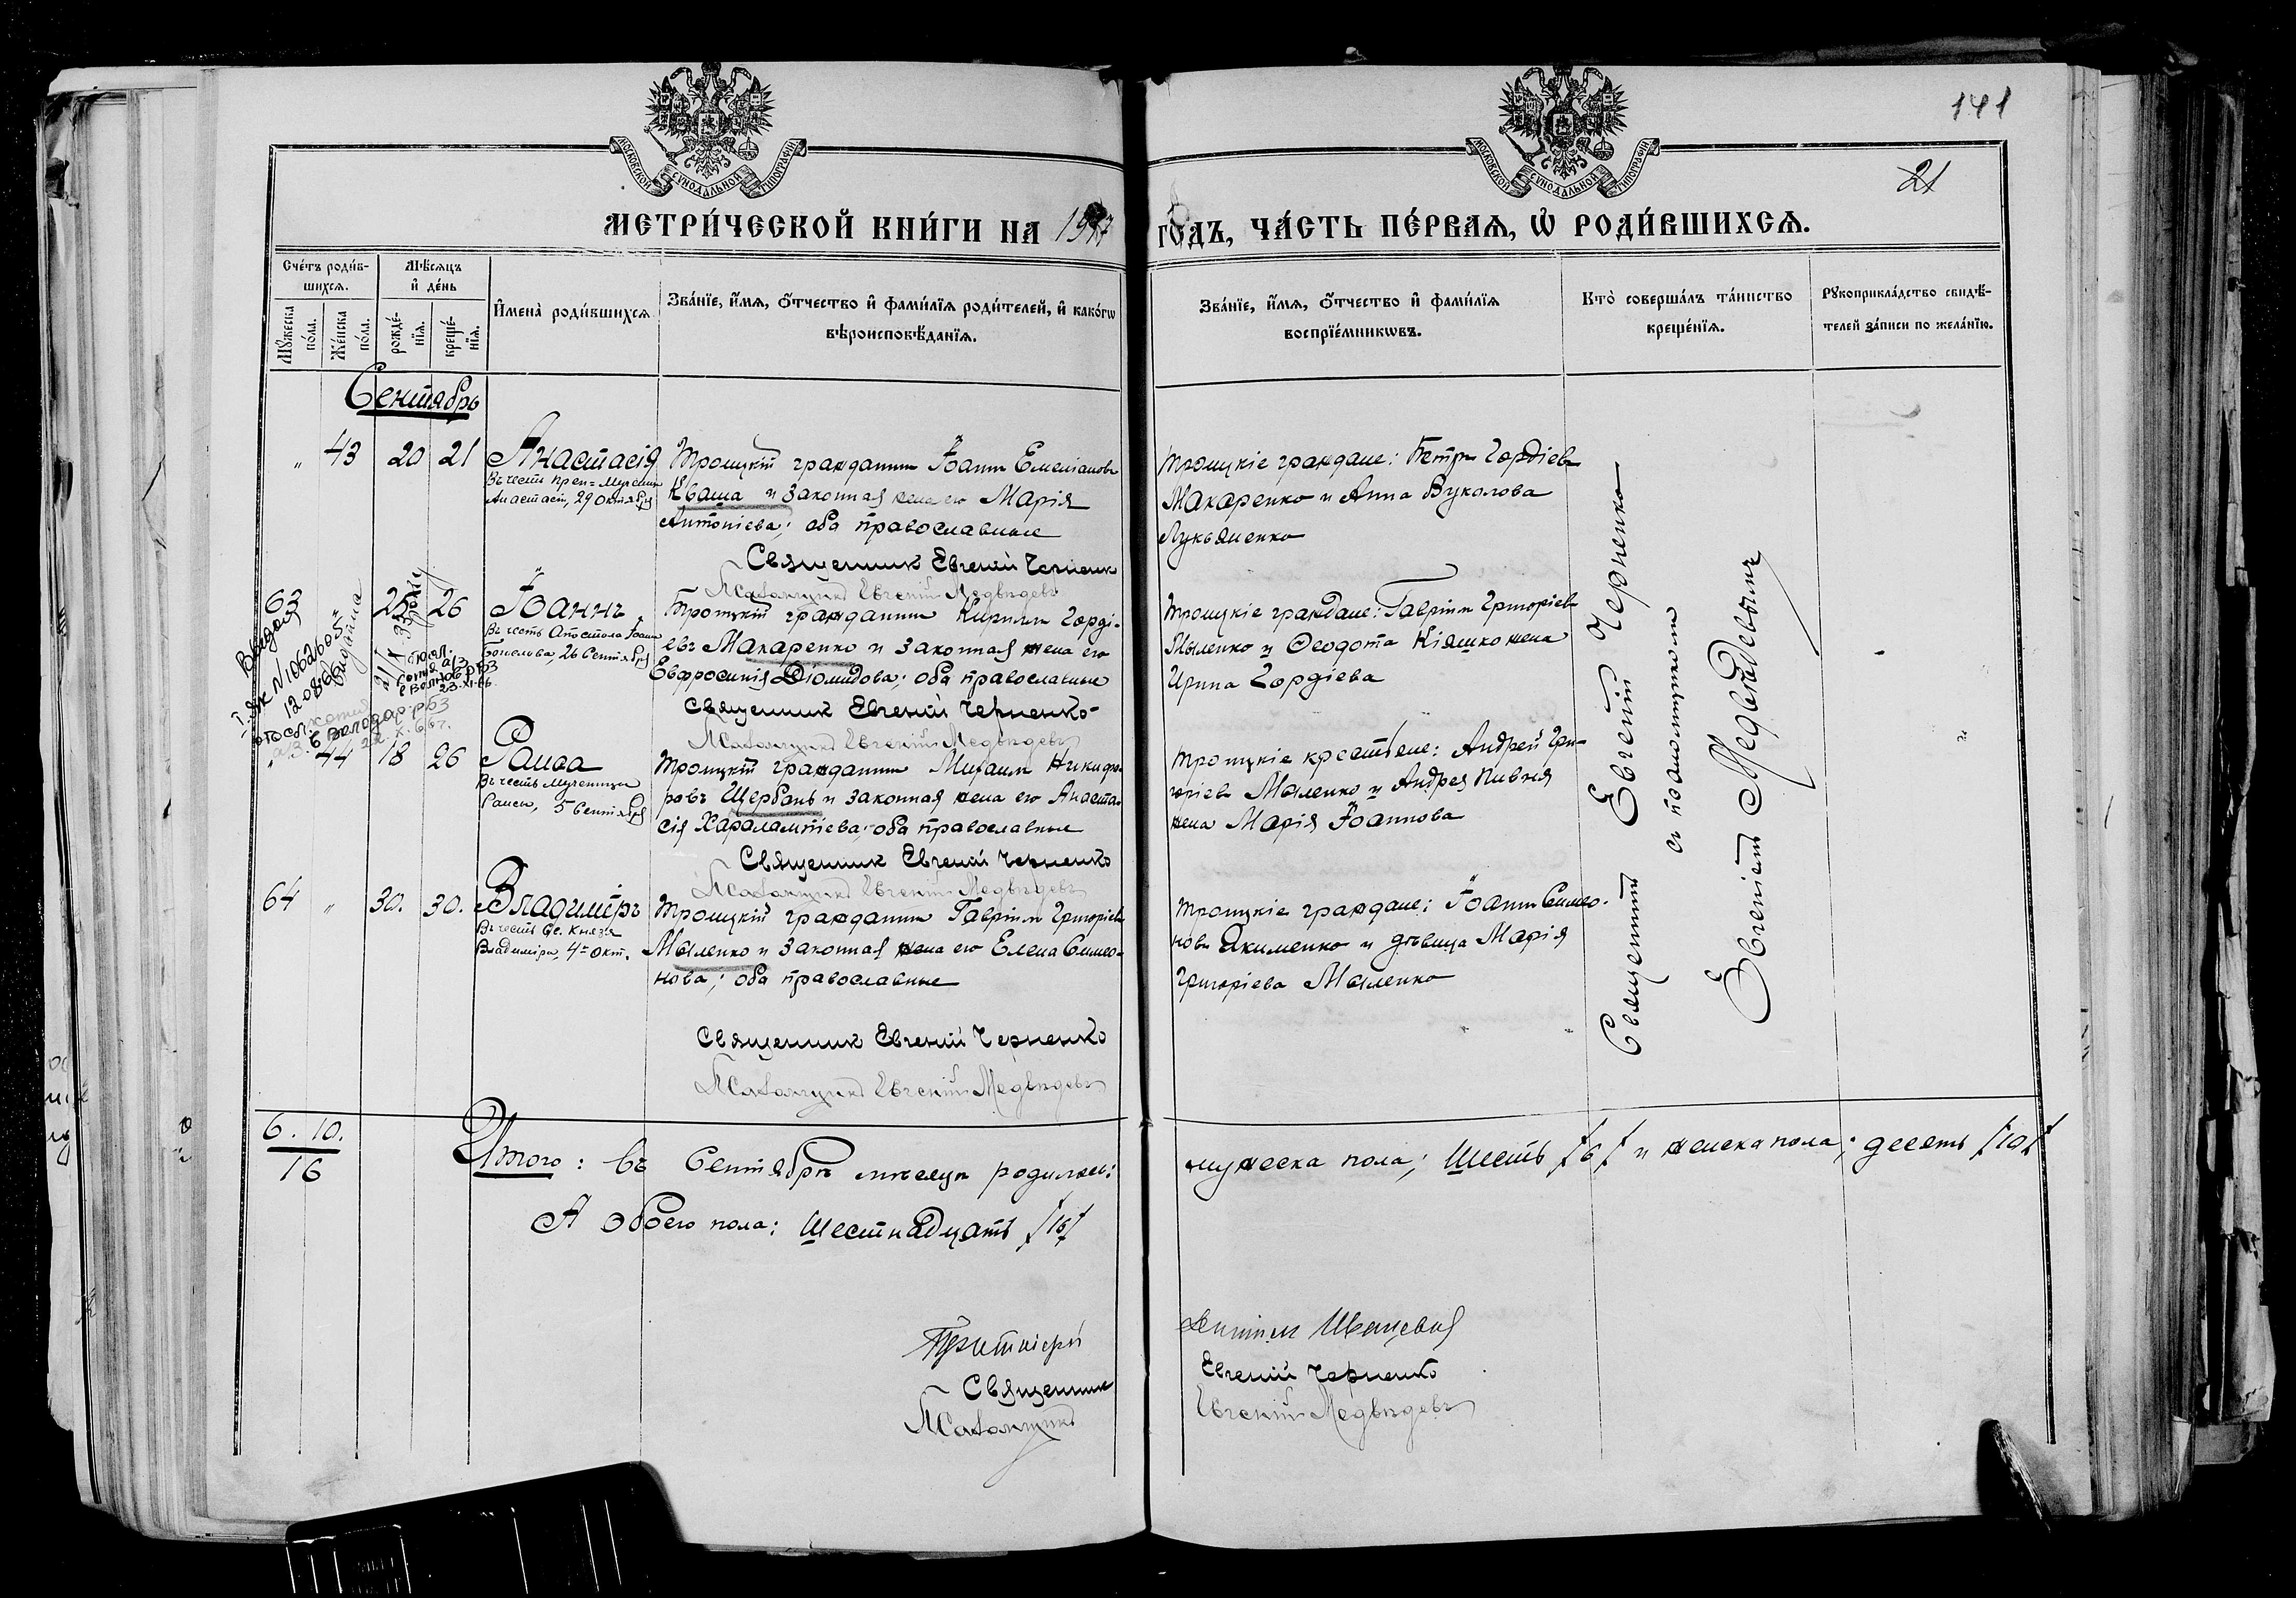 141
21
МОСКОВСКОЙ СѴНОДАЛЬНОЙ ТИПОГРАФІИ
МОСКОВСКОЙ СѴНОДАЛЬНОЙ ТИПОГРАФІИ
МЕТРИ́ЧЕСКОЙ КНИ́ГИ НА 1917 ГОДЪ, ЧА́СТЬ ПЕ́РВАѦ, Ѡ҆ РОДИ́ВШИХСѦ.
Сче́тъ роди́в-
шихсѧ.
Мꙋ́жеска по́ла.
Же́нска по́ла.
Мѣ́сѧцъ
и҆ де́нь
рожде́-
нїѧ.
креще́-
нїѧ.
И҆мена̀ роди́вшихсѧ
Зва́нїе, и҆́мѧ, ѻ҆́тчество и҆ фами́лїѧ роди́телей, и҆ како́гѡ
вѣроисповѣ́данїѧ.
Зва́нїе, и҆́мѧ, ѻ҆́тчество и҆ фами́лїѧ
воспрїе́мникѡвъ.
Кто̀ соверша́лъ та́инство
креще́нїѧ.
Рꙋкоприкла́дство свидѣ́-
телей за́писи по жела́нїю.
Сентябрь
" 43 20 21 Анастасія
Въ честь Преп=Мученицы
Анастасіи, 29 октября
Троицкій гражданинъ Іоаннъ Емеліановъ
Кваша и законная жена его Марія
Антоніева; оба православные
Священник Евгений Черненко
Псаломщикъ Евгеній Медвѣдевъ
Троицкіе граждане: Петръ Гордіевъ
Макаренко и Анна Вуколова
Лукьяненко
63 " 25 26 Іоаннъ
Въ честь Апостола Іоанна
Богослова, 26 Сентября
Троицкій гражданинъ Кириллъ Горді-
евъ Макаренко и законная жена его
Евфросинія Діомидова; оба православные
Священник Евгений Черненко
Псаломщикъ Евгеній Медвѣдевъ
Троицкіе граждане: Гавріилъ Григоріевъ
Мыленко и Ѳеодота Кіяшко жена
Ирина Гордіева
" 44 18 26 Раиса
Въ честь Мученицы
Раисы, 5 Сентября
Троицкій гражданинъ Михаилъ Никифо-
ровъ Щербань и законная жена его Анаста-
сія Харалампіева; оба православные
Священник Евгений Черненко
Псаломщикъ Евгеній Медвѣдевъ
Троицкіе крестьяне: Андрей Гри-
горіевъ Мыленко и Андрея Пивня
жена Марія Іоаннова
64 " 30. 30. Владиміръ
Въ честь Св. Князя
Владиміра, 4го окт.
Троицкій гражданинъ Гавріилъ Григоріевъ
Мыленко и законная жена его Елена Симео-
нова; оба православные
Священник Евгений Черненко
Псаломщикъ Евгеній Медвѣдевъ
Троицкіе граждане: Іоаннъ Симео-
новъ Якименко и дѣвица Марія
Григоріева Мыленко
Священникъ Евгеній Черненко
съ псаломщикомъ
Евгеніемъ Медвѣдевымъ
6. 10.
16
Итого: Въ Сентябрѣ мѣсяцѣ родилось: мужеска пола; Шесть /6/ и женска пола; десять /10/
А обоего пола: Шестнадцать /16/
Священник Евгений Черненко
Псаломщикъ Евгеній Медвѣдевъ